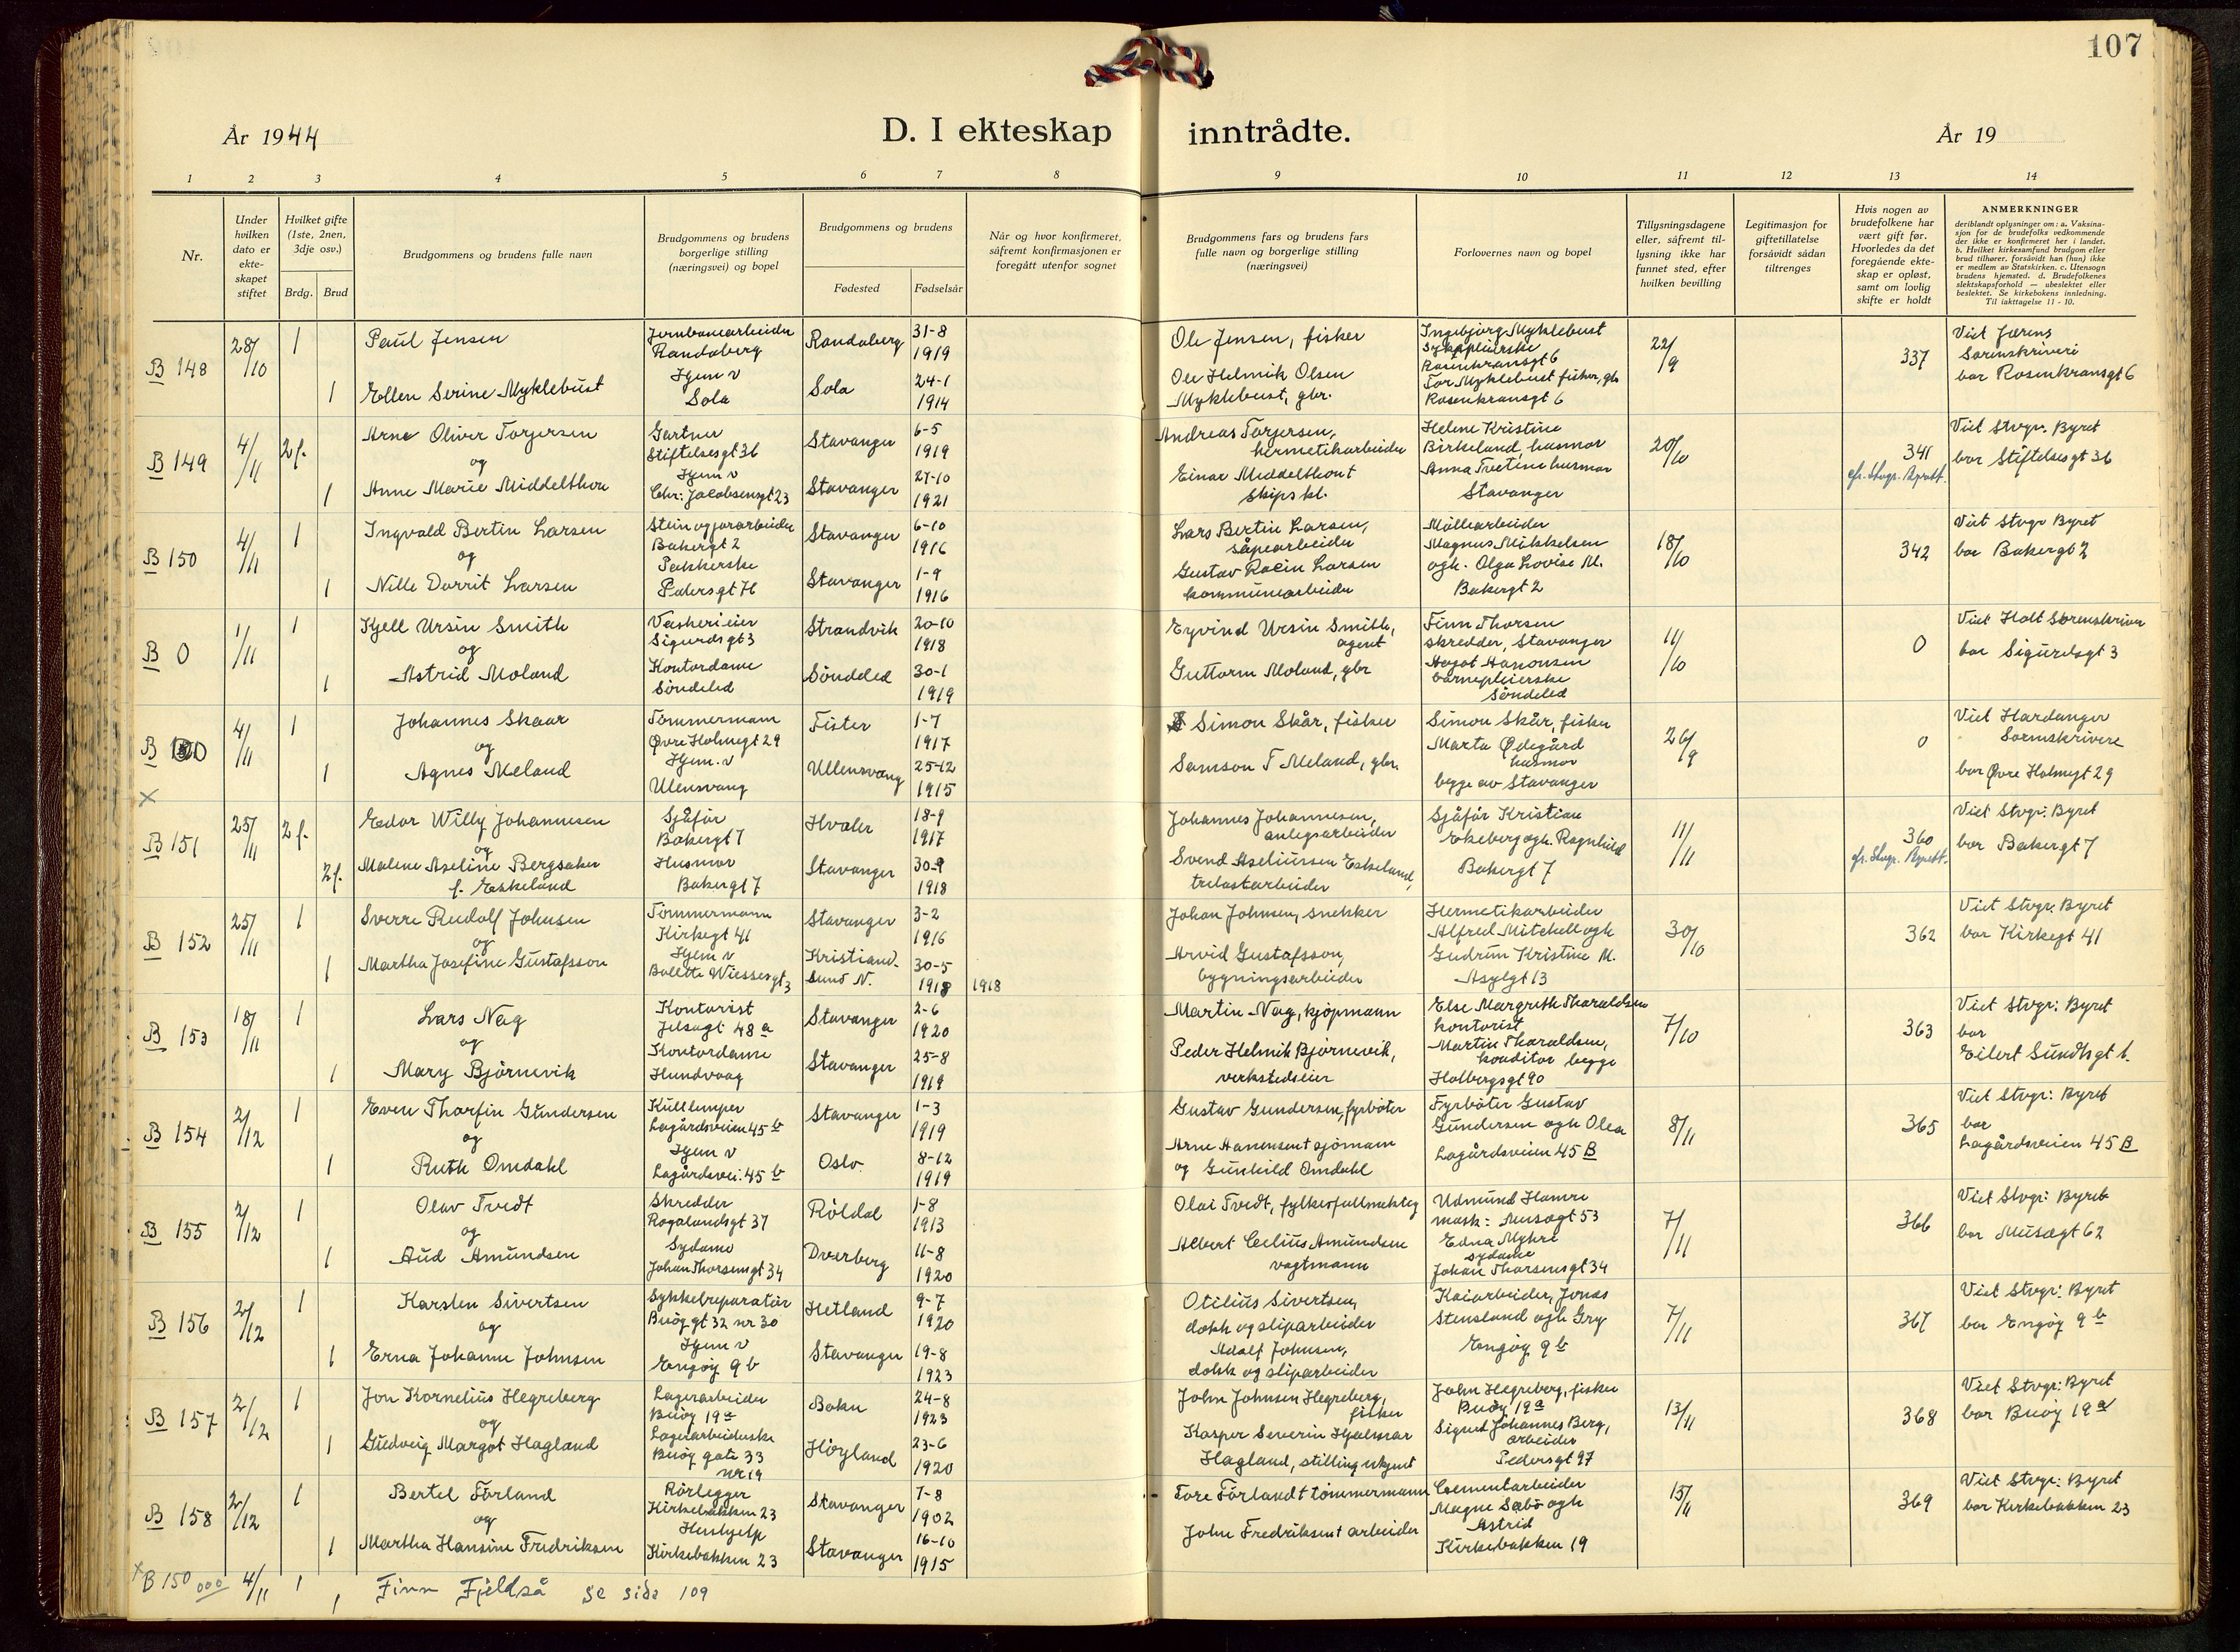 107
År 1944
D. I ekteskap inntrådte.
År 19
1 2 3 4 5 6 7 8 9 10 11 12 13 14
Nr.
Under hvilken dato er ekte-skapet stiftet
Hvilket gifte (1ste, 2nen, 3dje osv.)
Brdg. Brud
Brudgommens og brudens fulle navn
Brudgommens og brudens borgerlige stilling (næringsvei) og bopel
Brudgommens og brudens
Fødested Fødselsår
Når og hvor konfirmeret, såfremt konfirmasjonen er foregått utenfor sognet
Brudgommens fars og brudens fars fulle navn og borgerlige stilling (næringsvei)
Forlovernes navn og bopel
Tillysningsdagene eller, såfremt til-lysning ikke har funnet sted, efter hvilken bevilling
Legitimasjon for giftetillatelse forsåvidt sådan tiltrenges
Hvis nogen av brudefolkene har vært gift før. Hvorledes da det foregående ekte-skap er opløst, samt om lovlig skifte er holdt
ANMERKNINGER
deriblandt oplysninger om: a. Vaksina-sjon for de brudefolks vedkommende der ikke er konfirmeret her i landet. b. Hvilket kirkesamfund brudgom eller brud tilhører, forsåvidt han (hun) ikke er medlem av Statskirken. c. Utensogn brudens hjemsted. d. Brudefolkenes slektskapsforhold — ubeslektet eller beslektet. Se kirkebokens innledning. Til iakttagelse 11 - 10.
B 148 28/10 1 Paul Jensen Jernbanearbeider Randaberg Randaberg 31-8 1919
1 Ellen Serine Myklebust Hjem v Sola Sola 24-1 1914
Ole Jensen, fisker
Ole Helmik Olsen Myklebust, gbr.
Ingebjørg Myklebust sykepleierske Rosenkransgt 6
Tor Myklebust fisker, gbr Rosenkransgt 6
22/9 337 Viet Jærens Sorenskriveri bor Rosenkransgt 6
B 149 4/11 2f. Arne Oliver Torjersen Gartner Stiftelsesgt 36 Stavanger 6-5 1919
og
1 Anne Marie Middelthon Hjem v Chr: Jacobsensgt 23 Stavanger 27-10 1921
Andreas Torjersen, hermetikarbeider
Einar Middelthon † skips kl.
Helene Kristine Birkeland, husmor
Anna Tveten husmor Stavanger
20/10 341 Viet Stvgr. Byret bor Stiftelsesgt 36
B 150 4/11 1 Ingvald Bertin Larsen Stein og jordarbeider Bakergt 2 Stavanger 6-10 1916
og
1 Nille Dorrit Larsen Pakkerske Pedersgt 76 Stavanger 1-9 1916
Lars Bertin Larsen, såpearbeider
Gustav Racin Larsen kommunearbeider
Møllearbeider Magnus Mikkelsen ogh. Olga Lovise M. Bakergt 2
18/10 342 Viet Stvgr Byret bor Bakergt 2
B 0 1/11 1 Kjell Ursin Smith Vaskerieier Sigurdsgt 3 Strandvik 20-10 1918
og
1 Astrid Moland Kontordame Søndeled Søndeled 30-1 1919
Eyvind Ursin Smith, agent
Guttorm Moland, gbr
Finn Thorsen skredder, Stavanger
Aagot Aanonsen barnepleierske Søndeled
11/10 0 Viet Holt Sorenskriver bor Sigurdsgt 3
B 4/11 1 Johannes Skaar Tømmermann Øvre Holmegt 29 Fister 1-7 1917
og
1 Agnes Meland Hjem. v Ullensvang Ullensvang 25-12 1915
X
Simon Skår, fisker
Samson T Meland, gbr.
Simon Skår, fisker
Marta Ødegård husmor
begge av Stavanger
26/9 0 Viet Hardanger Sorenskrivere bor Øvre Holmegt 29
B 151 25/11 2f. Edor Willy Johannesen Sjåfør Bakergt 7 Hvaler 18-9 1917
og
2f. Malene Aseline Bergsaker f. Eskeland Husmor Bakergt 7 Stavanger 30-9 1918
Johannes Johannesen, anlegsarbeider
Svend Aseliussen Eskeland, trelastarbeider
Sjåfør Kristian Ekeberg ogh. Ragnhild Bakergt 7
11/11 360 Viet Stvgr. Byret bor Bakergt 7
B 152 25/11 1 Sverre Rudolf Johnsen Tømmermann Kirkegt 41 Stavanger 3-2 1916
og
1 Martha Josefine Gustafsson Hjem v Bolette Wiessesgt 3 Kristiansund N. 30-5 1918 1918
Johan Johnsen, snekker
Arvid Gustafsson, bygningsarbeider
Hermetikarbeider Alfred Mitchell ogh Gudrun Kristine M. Asylgt 13
30/10 362 Viet Stvgr. Byret bor Kirkegt 41
B 153 18/11 1 Lars Nag Kontorist Jelsagt 48 a Stavanger 2-6 1920
og
1 Mary Bjørnevik Kontordame Hundvaag Stavanger 25-8 1919
Martin Nag, kjøpmann
Peder Helmik Bjørnevik, verkstedseier
Else Margreth Tharaldsen kontorist
Martin Tharaldsen, konditor begge Holbergsgt 90
7/10 363 Viet Stvgr: Byret bor Eilert Sundtsgt 6.
B 154 2/12 1 Even Thorfin Gundersen Kullemper Lagårdsveien 45 b Stavanger 1-3 1919
og
1 Ruth Omdahl Hjem v Lagårdsvei. 45 b Oslo. 8-12 1919
Gustav Gundersen, fyrbøter
Arne Hansen † sjømann og Gunhild Omdahl
Fyrbøter Gustav Gundersen ogh Olea Lagårdsveien 45 B
8/11 365 Viet Stvgr: Byret bor Lagårdsveien 45 B
B 155 2/12 1 Olav Tvedt Skredder Rogalandsgt 37 Røldal 1-8 1913
og
1 Aud Amundsen Sydame Johan Thorsensgt 34 Dverberg 11-8 1920
Olai Tvedt, fylkesfullmektig
Albert Celius Amundsen vagtmann
Udmund Hamre mask: Musegt 53
Edna Myhre sydame Johan Thorsensgt 34
7/11 366 Viet Stvgr: Byret bor Musegt 62
B 156 2/12 1 Karsten Sivertsen Sykkelreparatør Buøygt 32 nr 30 Hetland 9-7 1920
og
1 Erna Johanne Johnsen Hjem v Engøy 9 b Stavanger 19-8 1923
Otilius Sivertsen, dokk og sliparbeider
Adolf Johnsen, dokk og sliparbeider
Kaiarbeider, Jonas Stensland ogh Gry Engøy 9 b
7/11 367 Viet Stvgr: Byret bor Engøy 9 b
B 157 2/12 1 Jon Kornelius Hegreberg Lagerarbeider Buøy 19 a Bokn 24-8 1923
og
1 Gudveig Margot Hagland Lagerarbeiderske Buøy gate 33 nr 19 Høyland 23-6 1920
John Johnsen Hegreberg, fisker
Kasper Severin Hjalmar Hagland, stilling ukjent
John Hegreberg, fisker Buøy 19 a
Sigurd Johannes Berg, arbeider Pedersgt 97
13/11 368 Viet Stvgr: Byret bor Buøy 19 a
B 158 2/12 1 Bertel Førland Rørlegger Kirkebakken 23 Stavanger 7-8 1902
og
1 Martha Hansine Fredriksen Hushjelp Kirkebakken 23 Stavanger 16-10 1915
Tore Førland † tømmermann
John Fredriksen † arbeider
Cementarbeider Magne Sæbø ogh Astrid Kirkebakken 19
15/11 369 Viet Stvgr: Byret bor Kirkebakken 23
x B 150 000 4/11 1 1 Finn Fjeldså se side 109